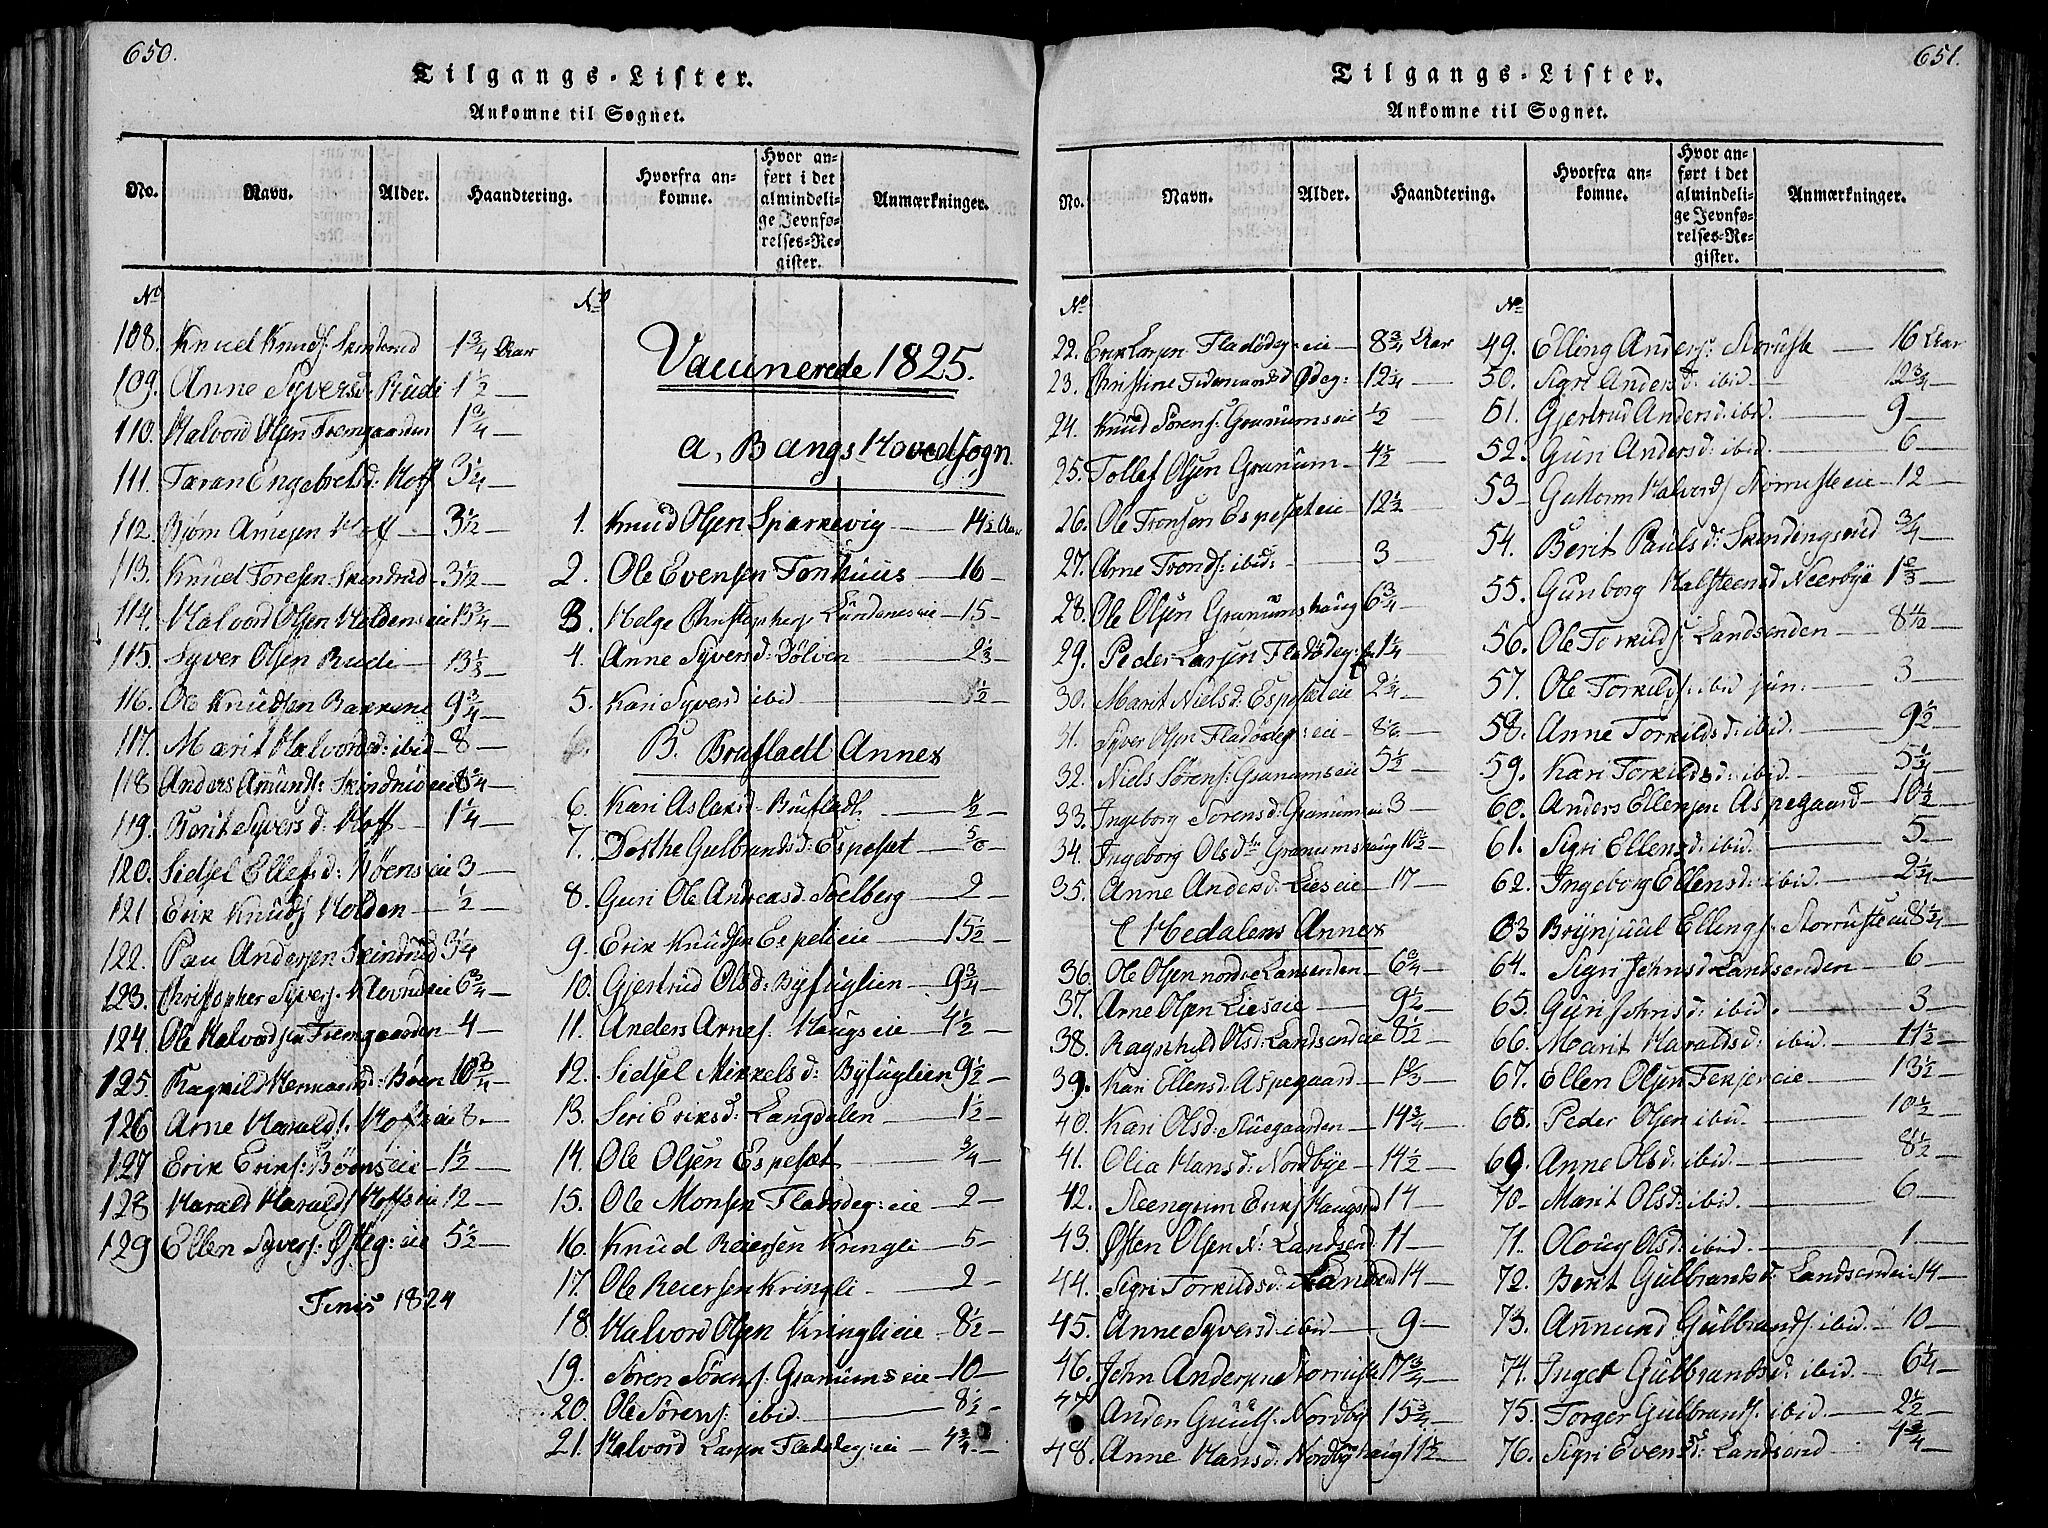 650.
Tilgangs-Lister.
Ankomne til Sognet.
No. Navn. Alder. Haandtering. Hvorfra ankomne. Hvor anført i det almindelige Jevnførelses-Register. Anmærkninger.
No
108. Knud Knuds. Skindrud 1 3/4 Aar
109. Anne Syversd. Rudi 1 1/2 —
110. Halvord Olsen Fremgaarden 1 3/4 —
111. Taran Engebretsd: Hoff 3 1/4 —
112. Bjørn Arnesen Hoff — 3 1/2 —
113. Knud Toresen Skindrud 3 1/2 —
114. Halvord Olsen Holdenseie 13 3/4 —
115. Syver Olsen Rudi — 13 1/3 —
116. Ole Knudsen Bakkene 9 3/4 —
117. Marit Halvordsd: ibid — 8 —
118 Anders Amunds: Skindrud eie 8 3/4 —
119. Berit Syversd: Hoff — 1 1/4 —
120. Sidsel Ellefsd: Høens eie 3 —
121 Erik Knuds Holden — 1/2 —
122. Pau Andersen Skindrud 3 1/4
123. Christopher Syvers. Klevnd eie 6 3/4 —
124. Ole Halvordsen Fremgaarden 4 —
125. Ragnild Hermandsd: Bøen 10 3/4 —
126 Arne Haralds. Hofs eie 8. —
127 Erik Eriks: Bøens eie — 1 1/2 —
128 Harald Haralds Hoffs eie 12 —
129 Ellen Syvers: Østeg: eie 5 1/2 —
Finis 1824
No
Vaccinerede 1825.
a, Bangs Hovedsogn.
1. Knud Olsen Sparkevig — 14 1/2 Aar
2. Ole Evensen Tonhuus — 16 —
3. Helge Christophers Lundeneseie — 15 —
4. Anne Syversd: Dølven — 2 2/3 —
5. Kari Syversd ibid — 1/2 —
B. Brufladt Annex
6. Kari Aslaksd. Brufladt. — 1/2 —
7. Dorthe Gulbrandsd: Espeset — 5/6 —
8. Guri Ole Andreasd. Soelberg — 2 —
9. Erik Knudsen Espelieie — 15 1/2 —
10. Gjertrud Olsd: Byfuglien — 9 3/4 —
11. Anders Arnes. Haugseie — 4 1/2 —
12. Sidsel Mikkelsd: Byfuglien 9 1/2 —
13. Seri Eriksd: Langdalen — 1 1/2 —
14. Ole Olsen Espeset — 3/4 —
15. Ole Monsen Fladsdeg: eie — 2 —
16. Knud Reiersen Kringli — 5 —
17. Ole Reiersen Kringli — 2 —
18. Halvord Olsen Kringlieie — 8 1/2 —
19. Søren Sørens. Granums eie — 10 —
20. Ole Sørens: ibid. — 8 1/2 —
21. Halvord Larsen Fladsdeg: eie — 4 3/4 —
651.
Tilgangs-Lister.
Ankomne til Sognet.
No. Navn. Alder. Haandtering. Hvorfra ankomne. Hvor anført i det almindelige Jevnførelses-Register. Anmærkninger.
No
22. Erik Larsen Fladødeg: eie — 8 3/4 Aar
23. Christine Tidemandsd Ødeg: — 12 1/4 —
24. Knud Sørens: Granumseie 1/2 —
25. Tollef Olsen Granum — 4 1/2 —
26. Ole Tronsen Espeseteie — 12 1/2 —
27. Arne Tronds: ibid: — 3 —
28. Ole Olsen Granumshaug 6 3/4 —
29. Peder Larsen Fladødeg: 1 1/4 —
30. Marit Nielsd: Espeseteie 2 1/4 —
31. Syver Olsen Fladødeg: eie — 8 1/6 —
32. Niels Sørens: Granumseie 5 1/2 —
33. Ingeborg Sorensd: Granum eie 3 —
34. Ingeborg Olsd Granumshaug 10 1/2 —
35. Anne Andersd: Lieseie — 17 —
C Hedalens Annex
36. Ole Olsen nordre Lansenden — 6 3/4 —
37. Arne Olsen Lieseie — 9 1/2 —
38. Ragnhild Olsd: Landsendeie 8 1/2 —
39. Kari Ellensd: Aspegaard — 1 2/3 —
40. Kari Olsd: Stuegaarden — 14 3/4 —
41. Olia Hansd: Nordbye — 14 1/2 —
42. Steengrim Eriks Haugsrud 14 —
43. Østen Olsen N: Landsend 11 —
44. Sigri Torkildsd: Landsend 14 —
45. Anne Syversd: ibid — 9 —
46. John Andersen Storruste 17 3/4 —
47 Anden Guuls: Nordby 15 3/4 —
48. Anne Hansd: Nordbyhaug 11 1/2 —
No
49. Elling Anders: Storruste — 16 Aar
50. Sigri Andersd: ibid — 12 3/4 —
51. Gjertrud Andersd: ibid. — 9 —
52. Gun Andersd: ibid. — 6 —
53 Guttorm Halvords Storrusteeie — 12 —
54. Berit Paulsd: Skindingsrud 3/4 —
55. Gunborg Halsteensd Neerbye 1 2/3 —
56. Ole Torkilds: Landsenden — 8 1/2 —
57. Ole Torkilds: ibid jun: — 3 —
58. Anne Torkildsd: ibid. — 9 1/2 —
59. Kari Torkildsd: ibid. — 5 1/4 —
60. Anders Ellensen Aspegaard — 10 1/2 —
61. Sigri Ellensd: ibid. — 5 —
62. Ingeborg Ellensd: ibid. — 2 1/4 —
63 Brynjuul Ellings: Storruste eie 8 1/4 —
64. Sigri Johnsd: Landsenden — 6 —
65. Guri Johnsd: ibid. — 3 —
66. Marit Haraldsd: ibid. — 11 1/2 —
67. Ellen Olsen Fekjereie — 13 1/2 —
68. Peder Olsen ibid. — 10 1/2 —
69. Anne Olsd: ibid. — 8 1/2 —
70 — Marit Olsd: ibid. — 6 —
71. Oloug Olsd: ibid. — 1 —
72. Berit Gulbrandsd: Landsendeie 14 —
73. Amund Gulbrands: ibid. — 10 —
74. Inget Gulbrandsd: ibid. — 6 1/4 —
75. Torger Gulbrands: ibid. — 2 1/2 —
76. Sigri Evensd: Landsend 4 3/4 —